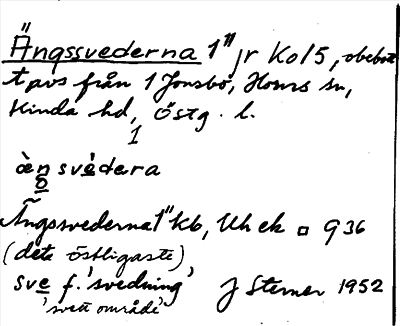 Ängssvederna 1" jr Ko/5, obebott
t pvs från 1 Jonsbo, Horns sn,
Kinda hd, Östg. l.
1
ànsvèdera
o
Ängsvederna 1" Kb, Uh ek □ 936
(dete östligaste)
sve f. 'svedning' J Sterner 1952
'svett område'